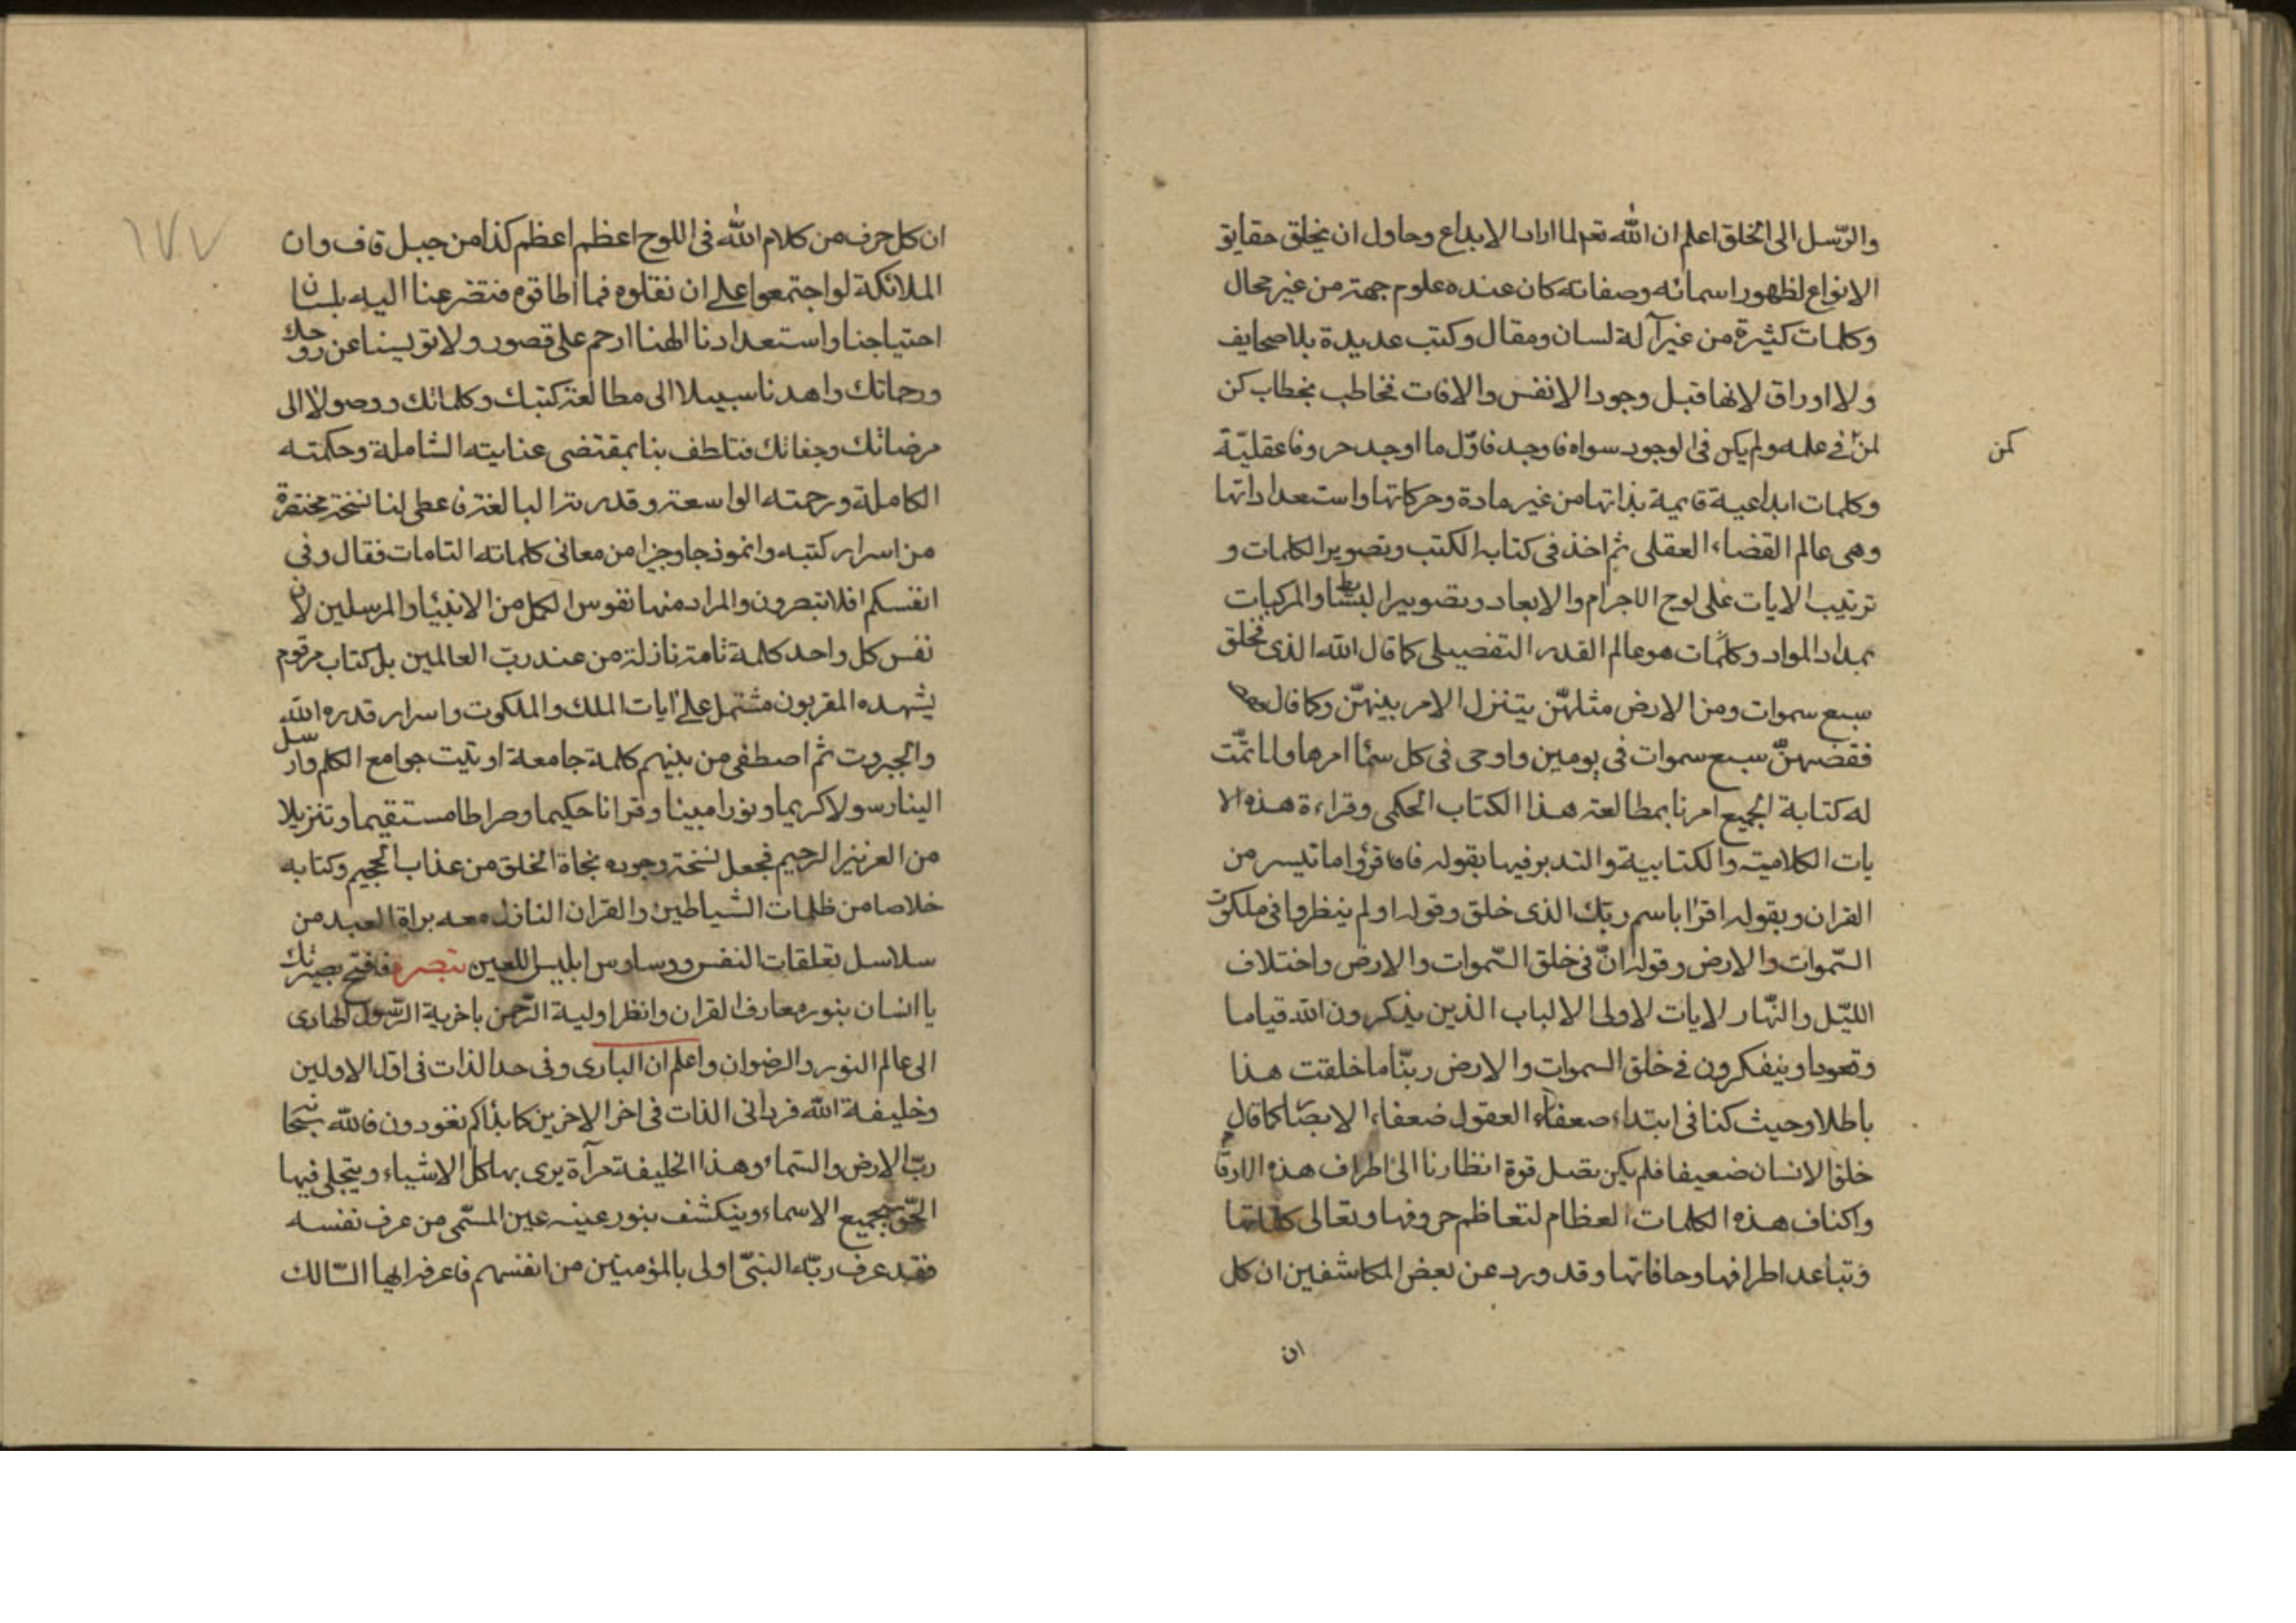 والرّسل الى الخلق اعلم ان الله تعم لما اراد الابداع وحاول ان يخلق حقايق
الانواع لظهور اسمائه وصفاته كان عنده علوم جمة من غير محال
وكلمات كثيرة من غير آلة لسان ومقال وكتب عديدة بلا صحايف
ولا اوراق لانها قبل وجود الانفس والافات فخاطب بخطاب كن
لمن فى علمه ولم يكن فى الوجود سواه فاوجد فاوّل ما اوجد حروفا عقليّة
كمن
وكلمات ابداعية قايمة بذاتها من غير مادة وحركاتها واستعداداتها
وهى عالم القضاء العقلى ثم اخذ فى كتابة الكتب وتصوير الكلمات و
ترتيب الايات على لوح الاجرام والابعاد وتصوير البسائط والمركبات
بمداد المواد وكلمات هو عالم القدر التفصيلى كما قال الله الذى خلق
سبع سموات ومن الارض مثلهنّ يتنزل الامر بينهنّ وكما قال
فقضهنّ سبع سموات فى يومين واوحى فى كل سماء امرها ولما تمّت
له كتابة الجميع امرنا بمطالعة هذا الكتاب الحكمى وقراءة هذه الا
يات الكلامية والكتابية والتدبر فيها بقوله فاقرؤا ما تيسر من
القران وبقوله اقرا باسم ربك الذى خلق وقوله اولم ينظروا فى ملكوت
السّموات والارض وقوله انّ فى خلق السّموات والارض واختلاف
الليّل والنّهار لايات لاولى الالباب الذين يذكرون الله قياما
وقعودا ويتفكرون فى خلق السموات والارض ربّنا ما خلقت هذا
باطلا وحيث كنا فى ابتداء ضعفاء العقول ضعفاء الابصار كما قال
خلق الانسان ضعيفا فلم يكن تصل قوة انظارنا الى اطراف هذه الارقا
واكناف هذه الكلمات العظام لتعاظم حروفها وتعالى كلماتها
وتباعد اطرافها وحافاتها وقد ورد عن بعض المكاشفين ان كل
ان
١٧٧
ان كل حرف من كلام الله فى اللوح اعظم اعظم كذا من جبل قاف وان
الملائكة لو اجتمعوا على ان نقلوه فما اطاقوه فتضرعنا اليه بلسان
احتياجنا واستعدادنا الهنا ارحم على قصور ولا تويسنا عن روحك
ورحماتك واهدنا سبيلا الى مطالعة كتبك وكلماتك ووصولا الى
مرضاتك وجناتك فتلطف بنا بمقتضى عنايته الشاملة وحكمته
الكاملة ورحمته الواسعة وقدرته البالغة فاعطى لنا نسخة مختصرة
من اسرار كتبه وانموذجا وجيزا من معانى كلماته التامات فقال وفى
انفسكم افلا تبصرون والمراد منها نفوس الكمل من الانبياء والمرسلين لان
نفس كل واحد كلمة تامة نازلة من عند ربّ العالمين بل كتاب مرقوم
يشهده المقربون مشتمل على ايات الملك والملكوت واسرار قدره الله
والجبروت ثم اصطفى من بينهم كلمة جامعة اوتيت جوامع الكلم وارسل
الينا رسولا كريما ونورا مبينا وقرانا حكيما وصراطا مستقيما وتنزيلا
من العزيز الرحيم فجعل نسخة وجوده نجاة الخلق من عذاب الجحيم وكتابه
خلاصا من ظلمات الشياطين والقران النازل معه براة العبد من
سلاسل تعلقات النفس ووساوس ابليس اللعين تبصرة فافتح بصيرتك
يا انسان بنور معارف القران وانظر اولية الرّحمن باخرية الرّسول الهادى
الى عالم النور والرضوان واعلم ان البارى وفى حد الذات فى اول الاولين
وخليفة الله فردانى الذات فى اخر الاخرين كما بداكم تعودون فالله سبحانه
ربّ الارض والسّماء وهذا الخليفة مرآة يرى بها كل الاشياء ويتجلى فيها
الحّق بجميع الاسماء وينكشف بنور عينه عين المسّمى من عرف نفسه
فقد عرف ربّه النبىّ اولى بالمؤمنين من انفسهم فاعرفه ايها السّالك